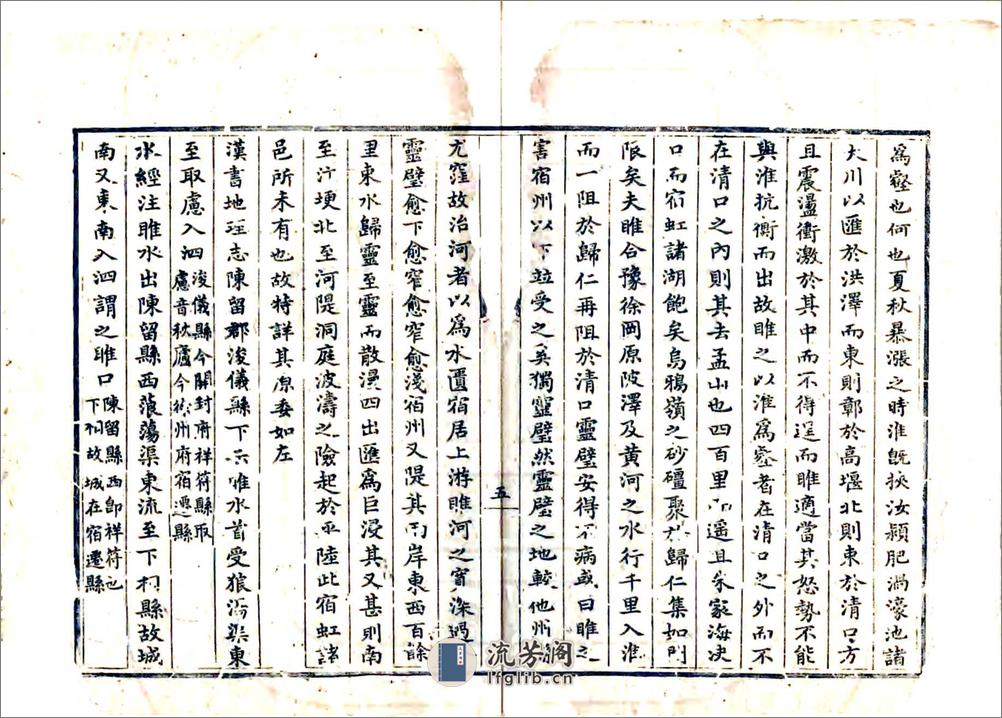 爲壑也何也夏秋暴漲之時淮旣挾汝潁肥渦濠池諸
大川以匯於洪澤而東則鄣於高堰北則東於清口方
且震盪衝激於其中而不得逞而睢適當其怒勢不能
與淮抗衡而出故睢之以淮爲壑者在清口之外而不
在清口之内則其去孟山也四百里而遥且朱家海决
口而宿虹諸湖飽矣烏鴉嶺之砂礓聚於歸仁集如門
限矣夫睢合豫徐岡原陂澤及黄河之水行千里入淮
而一阻於歸仁再阻於清口靈璧安得不病或曰睢之
害宿州以下竝受之奚獨靈璧然靈璧之地較他州
五
尤窪故治河者以爲水匱宿居上游睢河之寬深過
靈璧愈下愈窄愈窄愈淺宿州又隄其兩岸東西百餘
里東水歸靈至靈而散漫四出匯爲巨浸其又甚則南
至汴埂北至河隄洞庭波濤之險起於平陸此宿虹諸
邑所未有也故特詳其原委如左
漢書地理志陳留郡浚儀縣下云睢水首受狼湯渠東
至取慮入泗浚儀縣今開封府祥符縣取慮音秋廬今徐州府宿遷縣
水經注睢水出陳留縣西蒗蕩渠東流至下相縣故城
南又東南入泗謂之睢口陳留縣西卽祥符也下相故城在宿遷縣
流芳阁
lfglib.cn